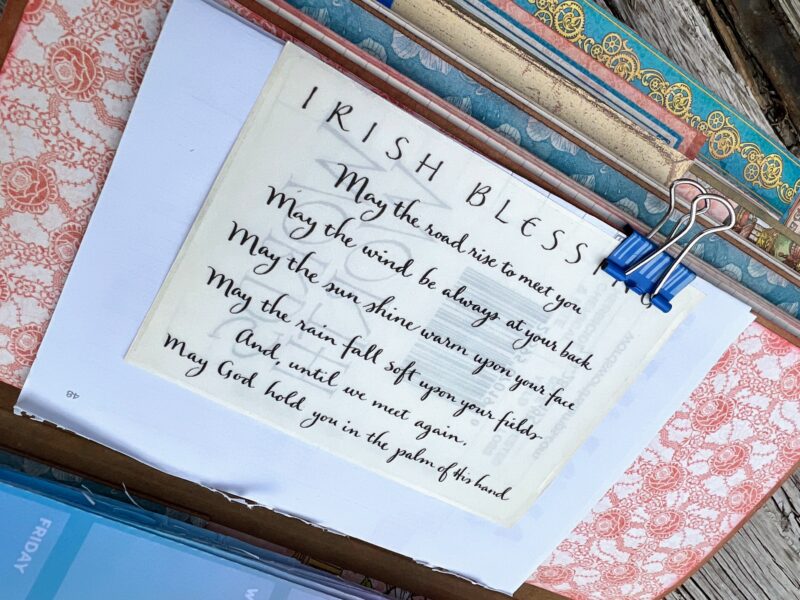 IRISH BLESSING
May the road rise to meet you
May the wind be always at your back
May the sun shine warm upon your face
May the rain fall soft upon your fields.
And, until we meet again,
May God hold you in the palm of His hand
48
FRIDAY